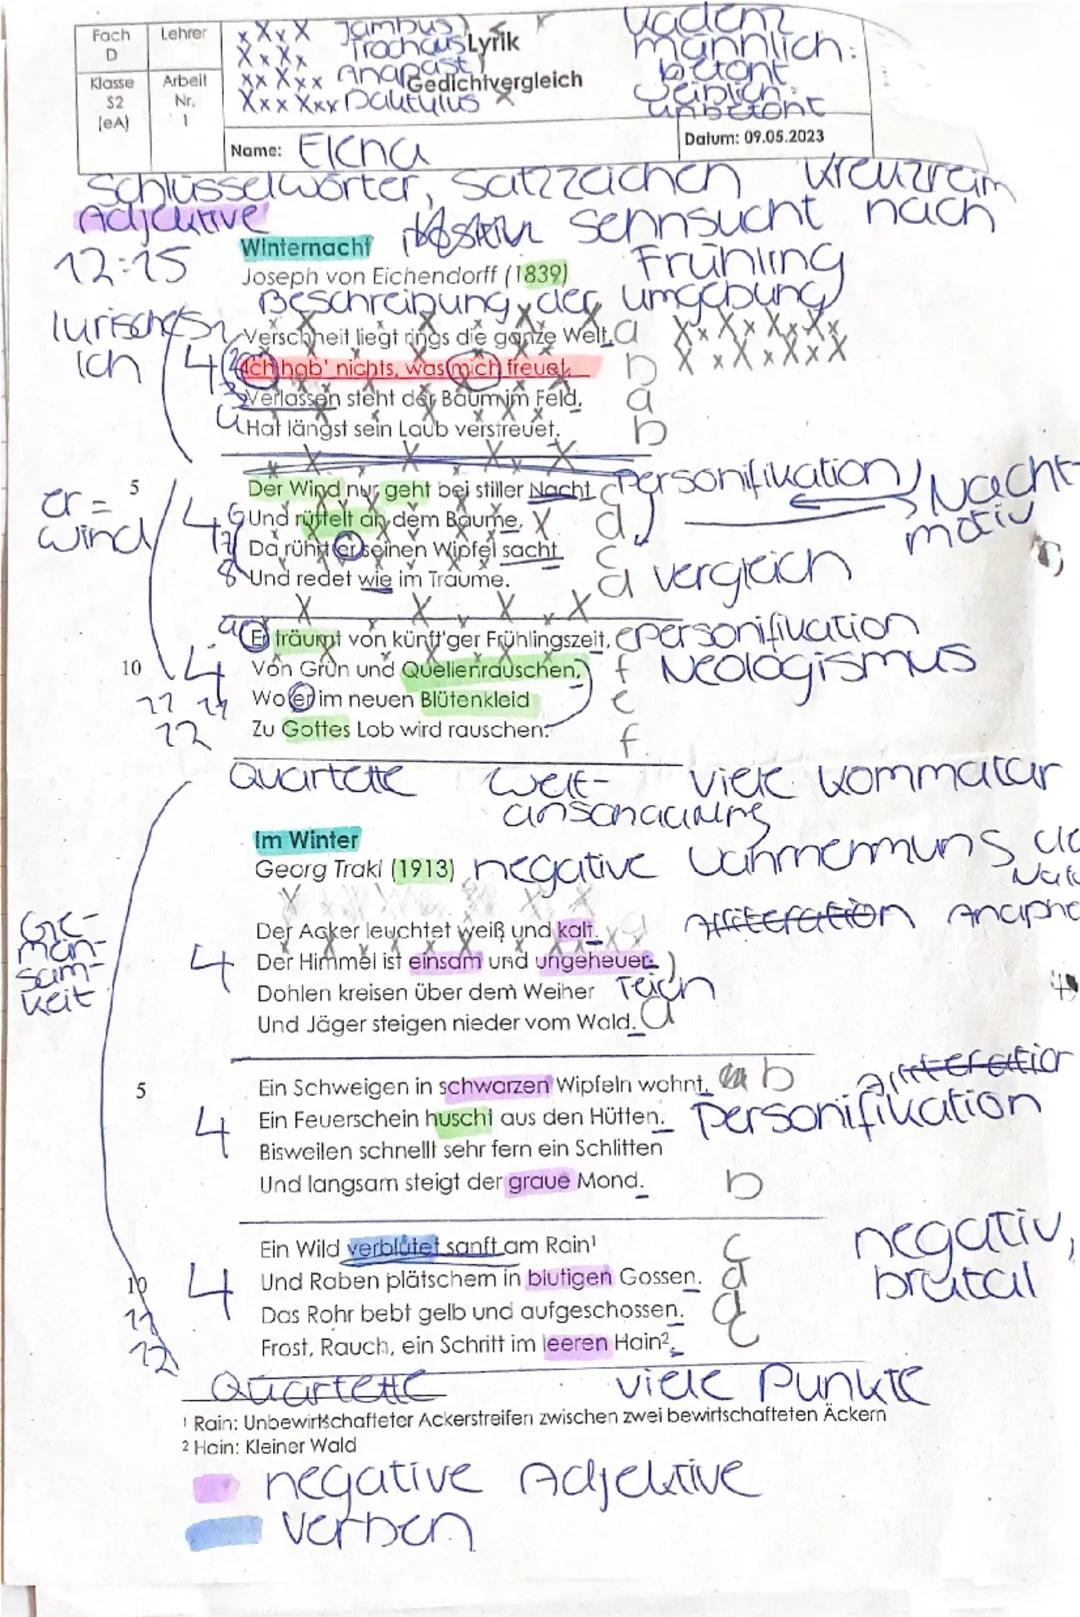 Fach D
Lehrer
Klasse S2 (eA)
Arbeit Nr. 1
x X x X Jambus
X x X x Trochäus Lyrik
x x X x x Anapäst Gedichtvergleich
X x x X x x Daktylus
Kadenz
männlich:
betont
weiblich:
unbetont
Name: Elena
Datum: 09.05.2023
Schlüsselwörter, Satzzeichen Kreuzreim
Adjektive Sehnsucht nach
12:15 Winternacht Frühling
Joseph von Eichendorff (1839)
Beschreibung der Umgebung
lyrisches Ich
Verschneit liegt rings die ganze Welt, a
4 Ich hab' nichts, was mich freuet, b
Verlassen steht der Baum im Feld, a
Hat längst sein Laub verstreuet. b
5 Der Wind nur geht bei stiller Nacht c Personifikation, Nacht-
er = Wind 4 6 Und rüttelt an dem Baume, d motiv
7 Da rührt er seinen Wipfel sacht c
8 Und redet wie im Traume. d Vergleich
9 Er träumt von künft'ger Frühlingszeit, e Personifikation
10 4 Von Grün und Quellenrauschen, f Neologismus
11 Wo er im neuen Blütenkleid e
12 Zu Gottes Lob wird rauschen. f
Quartette Welt- viele Kommatar
anschauung
Im Winter
Georg Trakl (1913) negative Wahrnehmung
Der Acker leuchtet weiß und kalt. a Alliteration Anapher
4 Der Himmel ist einsam und ungeheuer.
Dohlen kreisen über dem Weiher Teich
Und Jäger steigen nieder vom Wald. a
Ge-
mein-
sam-
keit
5 Ein Schweigen in schwarzen Wipfeln wohnt. b Alliteration
4 Ein Feuerschein huscht aus den Hütten. Personifikation
Bisweilen schnellt sehr fern ein Schlitten
Und langsam steigt der graue Mond. b
Ein Wild verblutet sanft am Rain¹ c negativ,
10 4 Und Raben plätschern in blutigen Gossen. d brutal
11 Das Rohr bebt gelb und aufgeschossen. d
12 Frost, Rauch, ein Schritt im leeren Hain². c
Quartette viele Punkte
¹ Rain: Unbewirtschafteter Ackerstreifen zwischen zwei bewirtschafteten Äckern
² Hain: Kleiner Wald
negative Adjektive
Verben